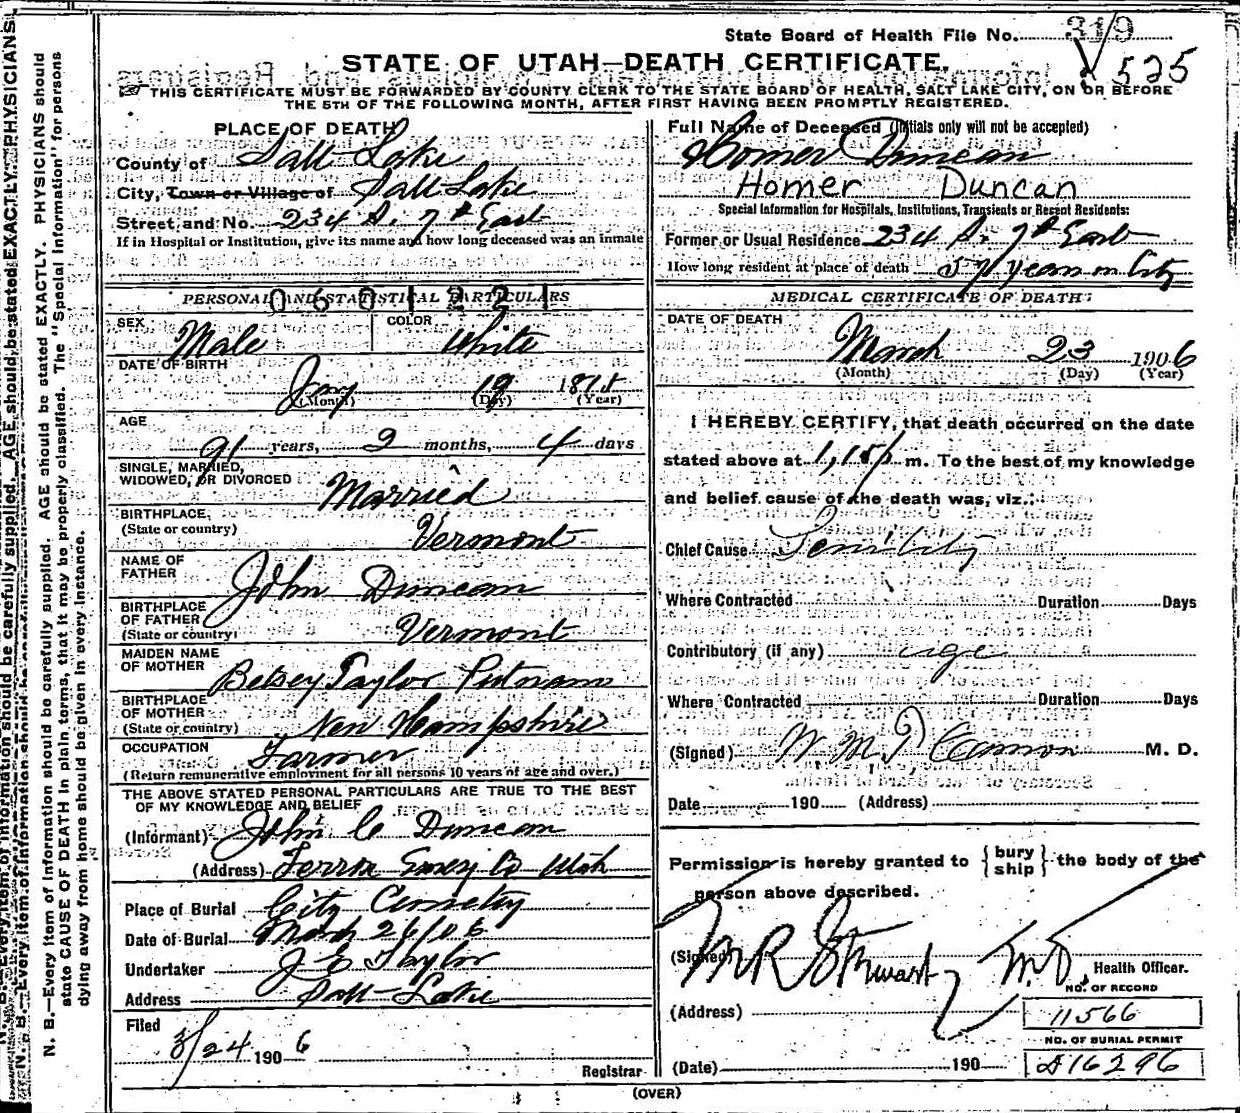 State Board of Health File No. 319
525
STATE OF UTAH—DEATH CERTIFICATE.
THIS CERTIFICATE MUST BE FORWARDED BY COUNTY CLERK TO THE STATE BOARD OF HEALTH, SALT LAKE CITY, ON OR BEFORE
THE 5TH OF THE FOLLOWING MONTH, AFTER FIRST HAVING BEEN PROMPTLY REGISTERED.
PLACE OF DEATH
County of Salt Lake
City, Town or Village of Salt Lake
Street and No. 234 So. 7th East
If in Hospital or Institution, give its name and how long deceased was an inmate
PERSONAL AND STATISTICAL PARTICULARS
0601221
SEX Male COLOR White
DATE OF BIRTH
Jany 19 1815
(Month) (Day) (Year)
AGE
91 years, 2 months, 4 days
SINGLE, MARRIED,
WIDOWED, OR DIVORCED Married
BIRTHPLACE,
(State or country) Vermont
NAME OF
FATHER John Duncan
BIRTHPLACE
OF FATHER
(State or country) Vermont
MAIDEN NAME
OF MOTHER Betsey Taylor Putnam
BIRTHPLACE
OF MOTHER
(State or country) New Hampshire
OCCUPATION Farmer
(Return remunerative employment for all persons 10 years of age and over.)
THE ABOVE STATED PERSONAL PARTICULARS ARE TRUE TO THE BEST
OF MY KNOWLEDGE AND BELIEF
(Informant) John C Duncan
(Address) Ferron Emery Co Utah
Place of Burial City Cemetery
Date of Burial March 26/06
Undertaker J E Taylor
Address Salt Lake
Filed
3/24 1906
Registrar
Full Name of Deceased (Initials only will not be accepted)
Homer Duncan
Homer Duncan
Special Information for Hospitals, Institutions, Transients or Recent Residents:
Former or Usual Residence 234 So. 7th East
How long resident at place of death 57 years in City
MEDICAL CERTIFICATE OF DEATH:
DATE OF DEATH
March 23 1906
(Month) (Day) (Year)
I HEREBY CERTIFY, that death occurred on the date
stated above at 1,15 p m. To the best of my knowledge
and belief cause of the death was, viz.:
Chief Cause Senility
Where Contracted Duration Days
Contributory (if any) age
Where Contracted Duration Days
(Signed) Cannon M. D.
Date 190 (Address)
Permission is hereby granted to { bury ship } the body of the
person above described.
(Signed) M R Stewart M.D. Health Officer.
NO. OF RECORD
(Address) 11566
NO. OF BURIAL PERMIT
(Date) 190 16296
(OVER)
N. B.—Every item of information should be carefully supplied. AGE should be stated EXACTLY. PHYSICIANS should
state CAUSE OF DEATH in plain terms, that it may be properly classified. The "Special Information" for persons
dying away from home should be given in every instance.